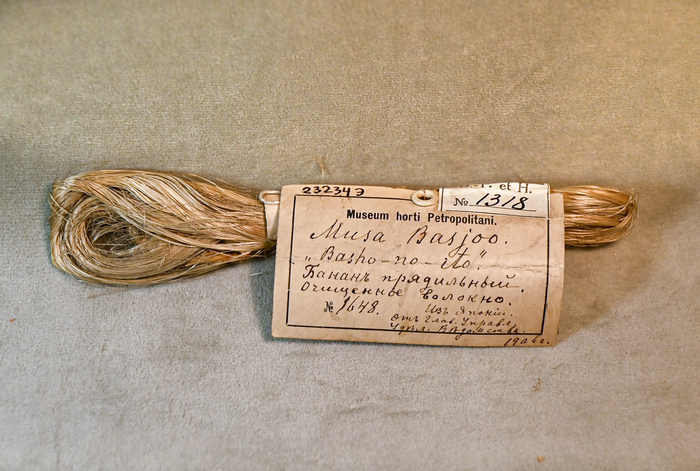 232349
г. et H.
№ 1318
Museum horti Petropolitani.
Musa Basjoo.
„Basho-no-ito".
Бананъ прядильный.
Очищенное волокно.
№ 1648.
Изъ Японіи.
отъ Глав. Управл.
Удѣл. Вѣдомства.
1906 г.